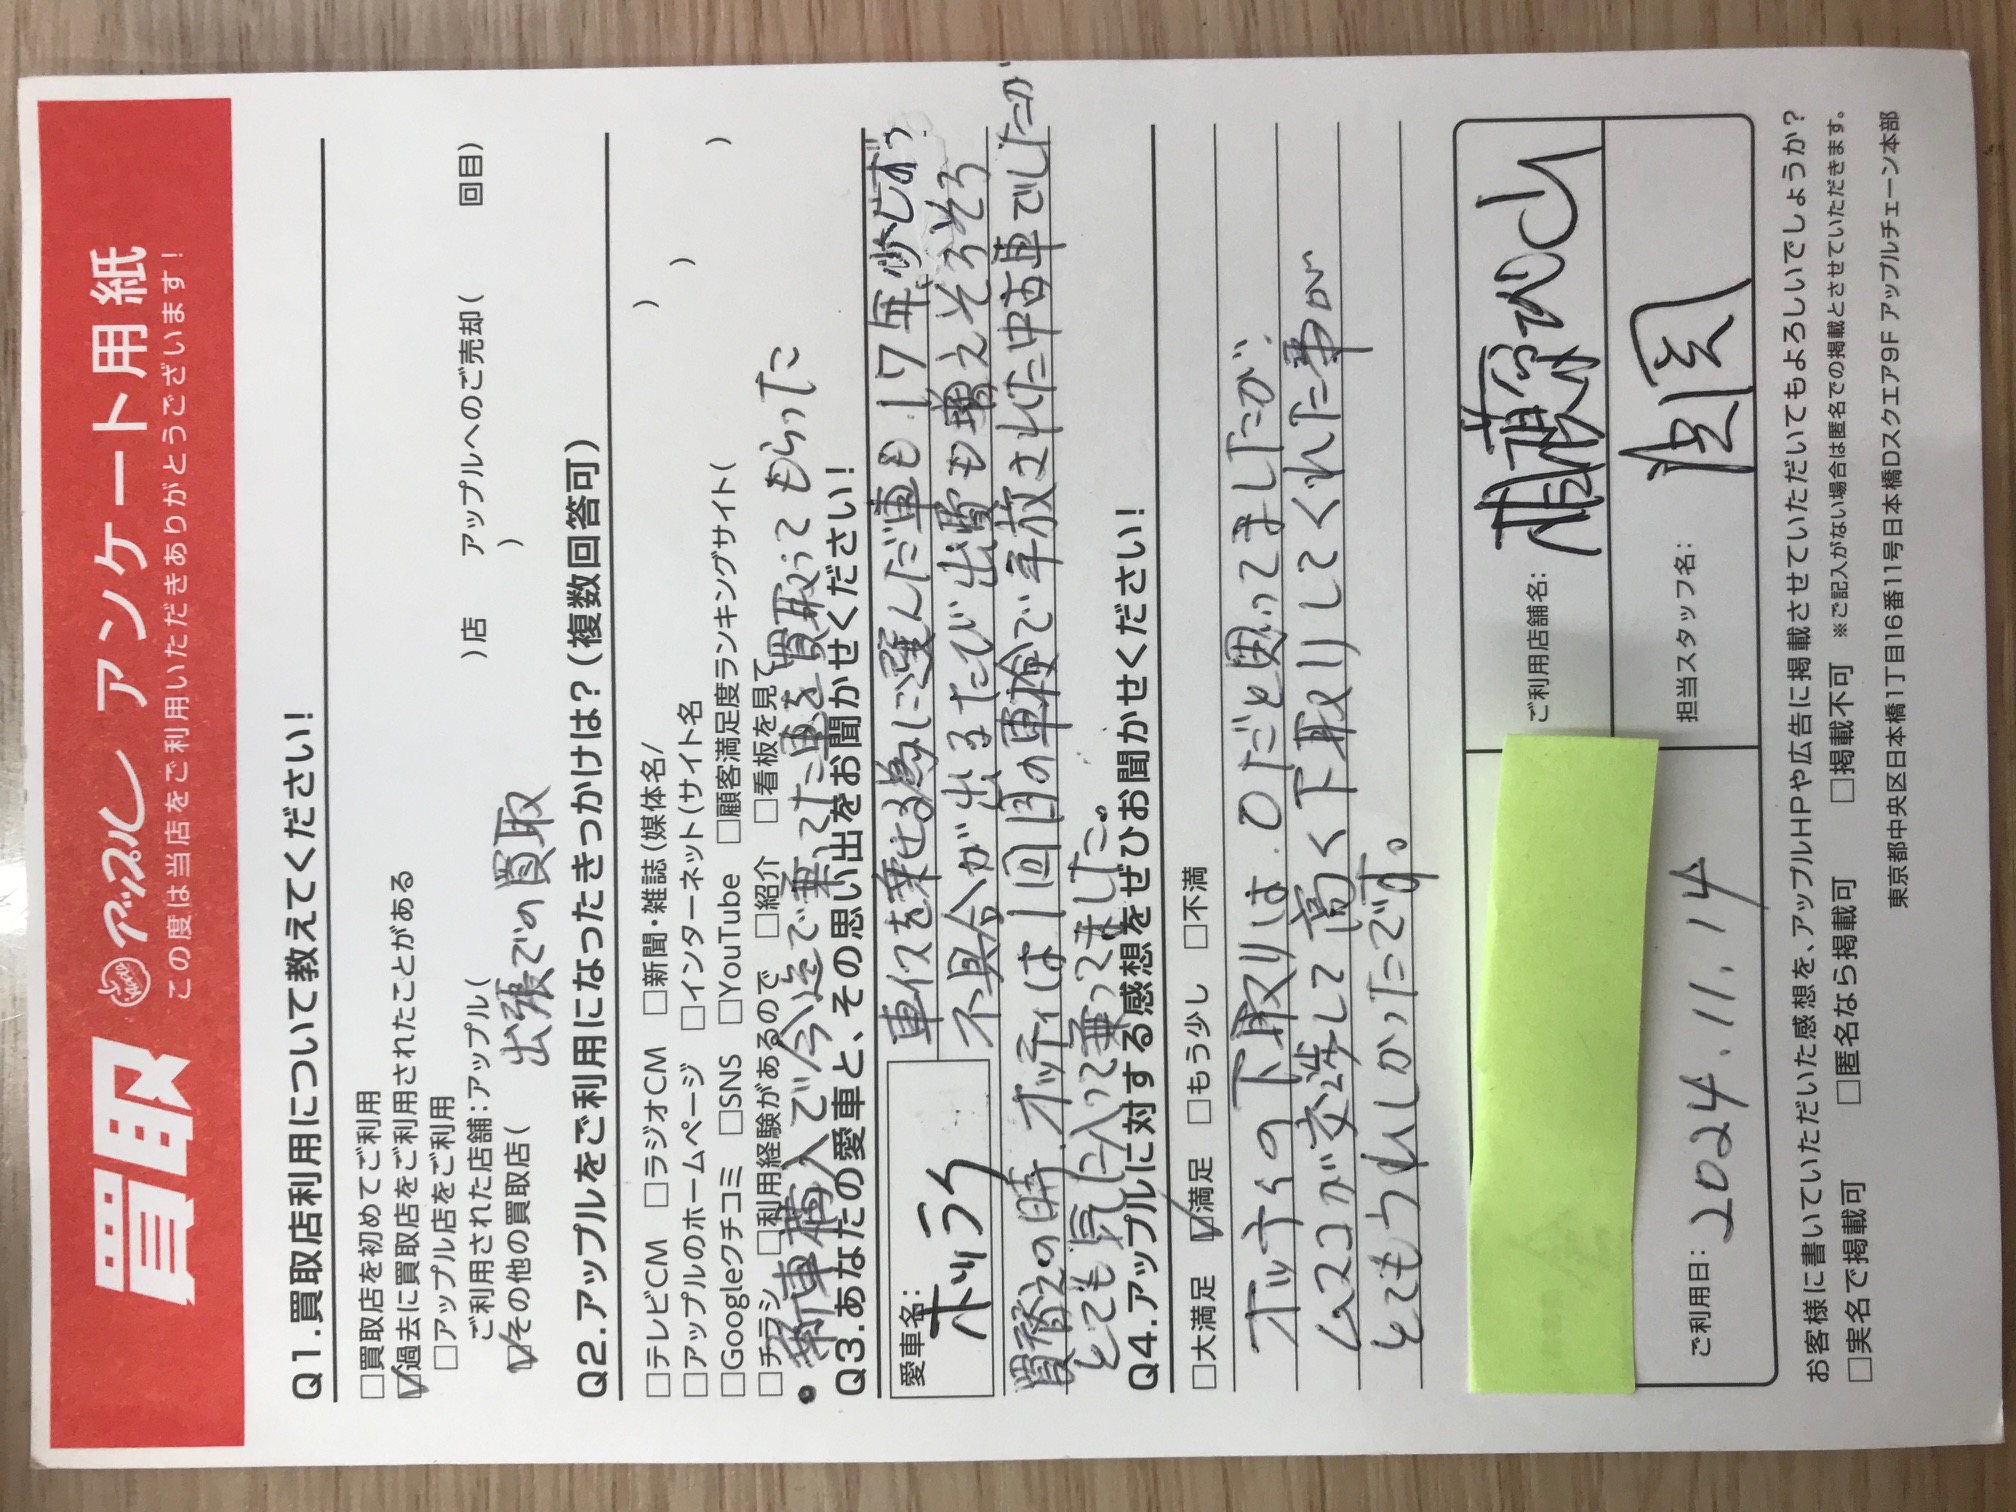 買取 アップル アンケート用紙
Apple
この度は当店をご利用いただきありがとうございます!
Q1.買取店利用について教えてください!
□買取店を初めてご利用
☑過去に買取店をご利用されたことがある
□アップル店をご利用
ご利用された店舗:アップル( )店 アップルへのご売却( 回目)
☑その他の買取店( 出張での買取 )
Q2.アップルをご利用になったきっかけは?(複数回答可)
□テレビCM □ラジオCM □新聞・雑誌(媒体名/ )
□アップルのホームページ □インターネット(サイト名 )
□Googleクチコミ □SNS □YouTube □顧客満足度ランキングサイト( )
□チラシ □利用経験があるので □紹介 □看板を見て
●新車構入で今迄で乗ってた車を買取ってもらった
Q3.あなたの愛車と、その思い出をお聞かせください!
愛車名:
車イスを乗せる為に選んだ車も17年少し
不具合が出るたび出費も増えそろそろ
買替えの時 オッティは1回目の車検で手放された中古車でしたが
とても気に入って乗ってました。
Q4.アップルに対する感想をぜひお聞かせください!
□大満足 ☑満足 □もう少し □不満
オッティの下取りは0だと思ってましたが
ムスコが交渉して高く下取りしてくれた事が
とてもうれしかったです。
ご利用店舗名:
担当スタッフ名:
ご利用日: 2024.11.14
お客様に書いていただいた感想を、アップルHPや広告に掲載させていただいてもよろしいでしょうか?
□実名で掲載可 □匿名なら掲載可 □掲載不可 ※ご記入がない場合は匿名での掲載とさせていただきます。
東京都中央区日本橋1丁目16番11号日本橋Dスクエア9F アップルチェーン本部